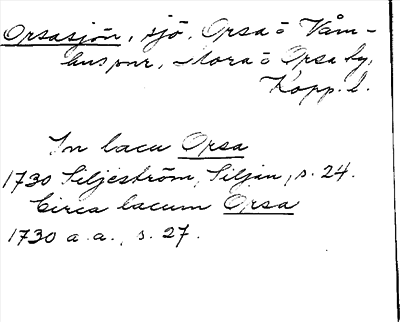 Orsasjön, sjö, Orsa o Våm-
hus snr, Mora o Orsa tg,
Kopp. l.
In lacu Orsa
1730 Siljeström, Siljan, s. 24.
Circa lacum Orsa
1730 a.a., s. 27.